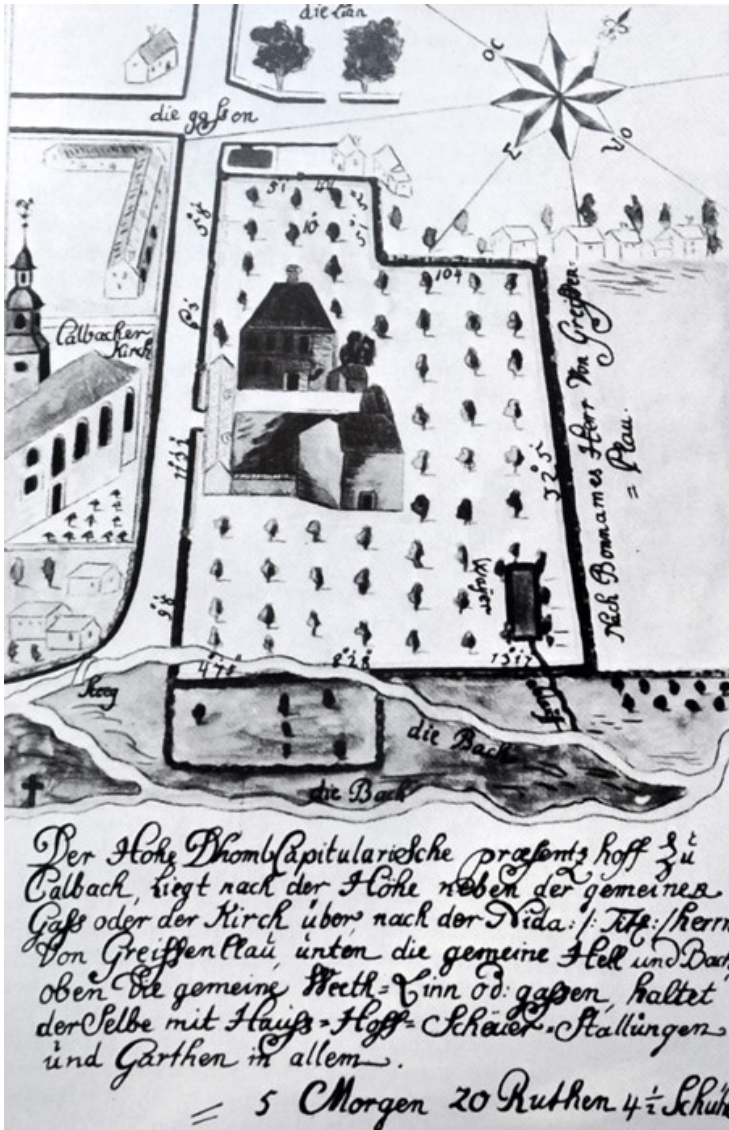 die Lin
die gassen
OC
S
VO
51
104
10
5
104
Calbacher
Kirch
Nach Bonnames Herr Von Greiffen-
= Clau.
Wasser
325
98
478
828
1517
Steeg
die Bach
die Bach
Der Hohe DhombCapitularische præsentz hoff Zu
Calbach, Liegt nach der Höhe neben der gemeinen
Gass oder der Kirch über nach der Nida :/: Titt: / herrn
Von Greiffen Clau, unten die gemeine Hell und Bach,
oben die gemeine Weeth = Linn od: gassen, haltet
der Selbe mit Hauss = Hoff = Scheuer = Stallungen
und Garthen in allem.
= 5 Morgen 20 Ruthen 4 ½ Schuh